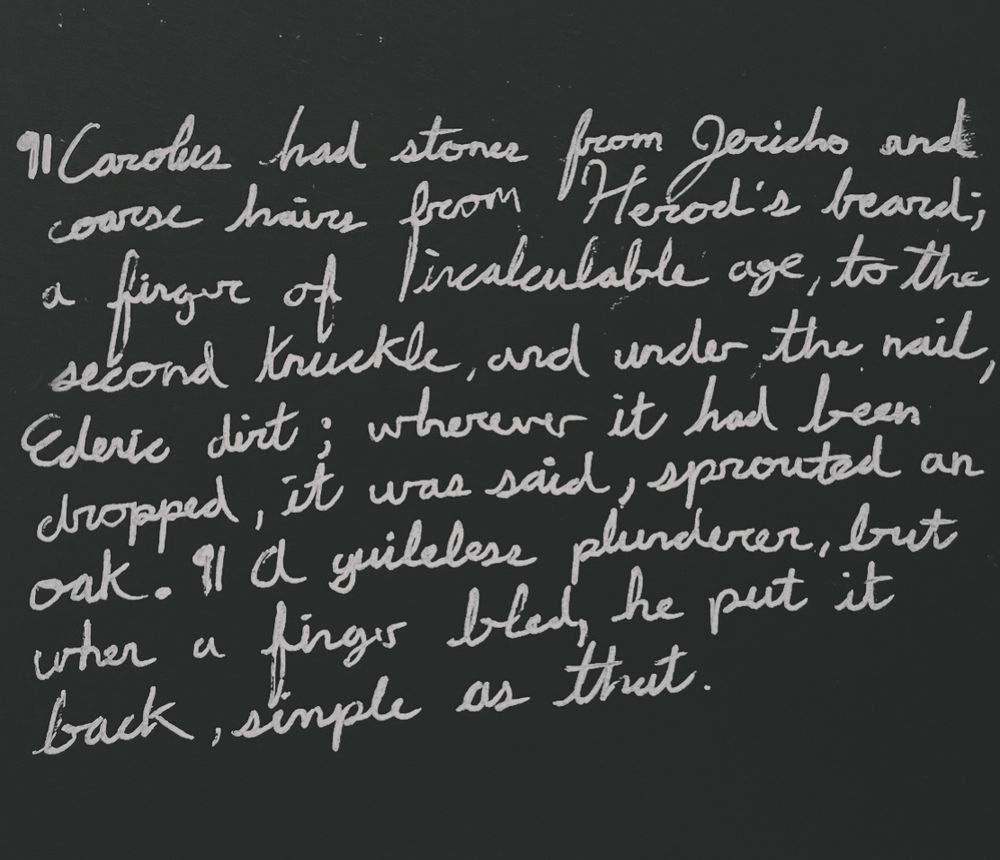 ¶Carolus had stones from Jericho and
coarse hairs from Herod's beard;
a finger of incalculable age, to the
second knuckle, and under the nail,
Edenic dirt; wherever it had been
dropped, it was said, sprouted an
oak. ¶ A guileless plunderer, but
when a finger bled, he put it
back, simple as that.